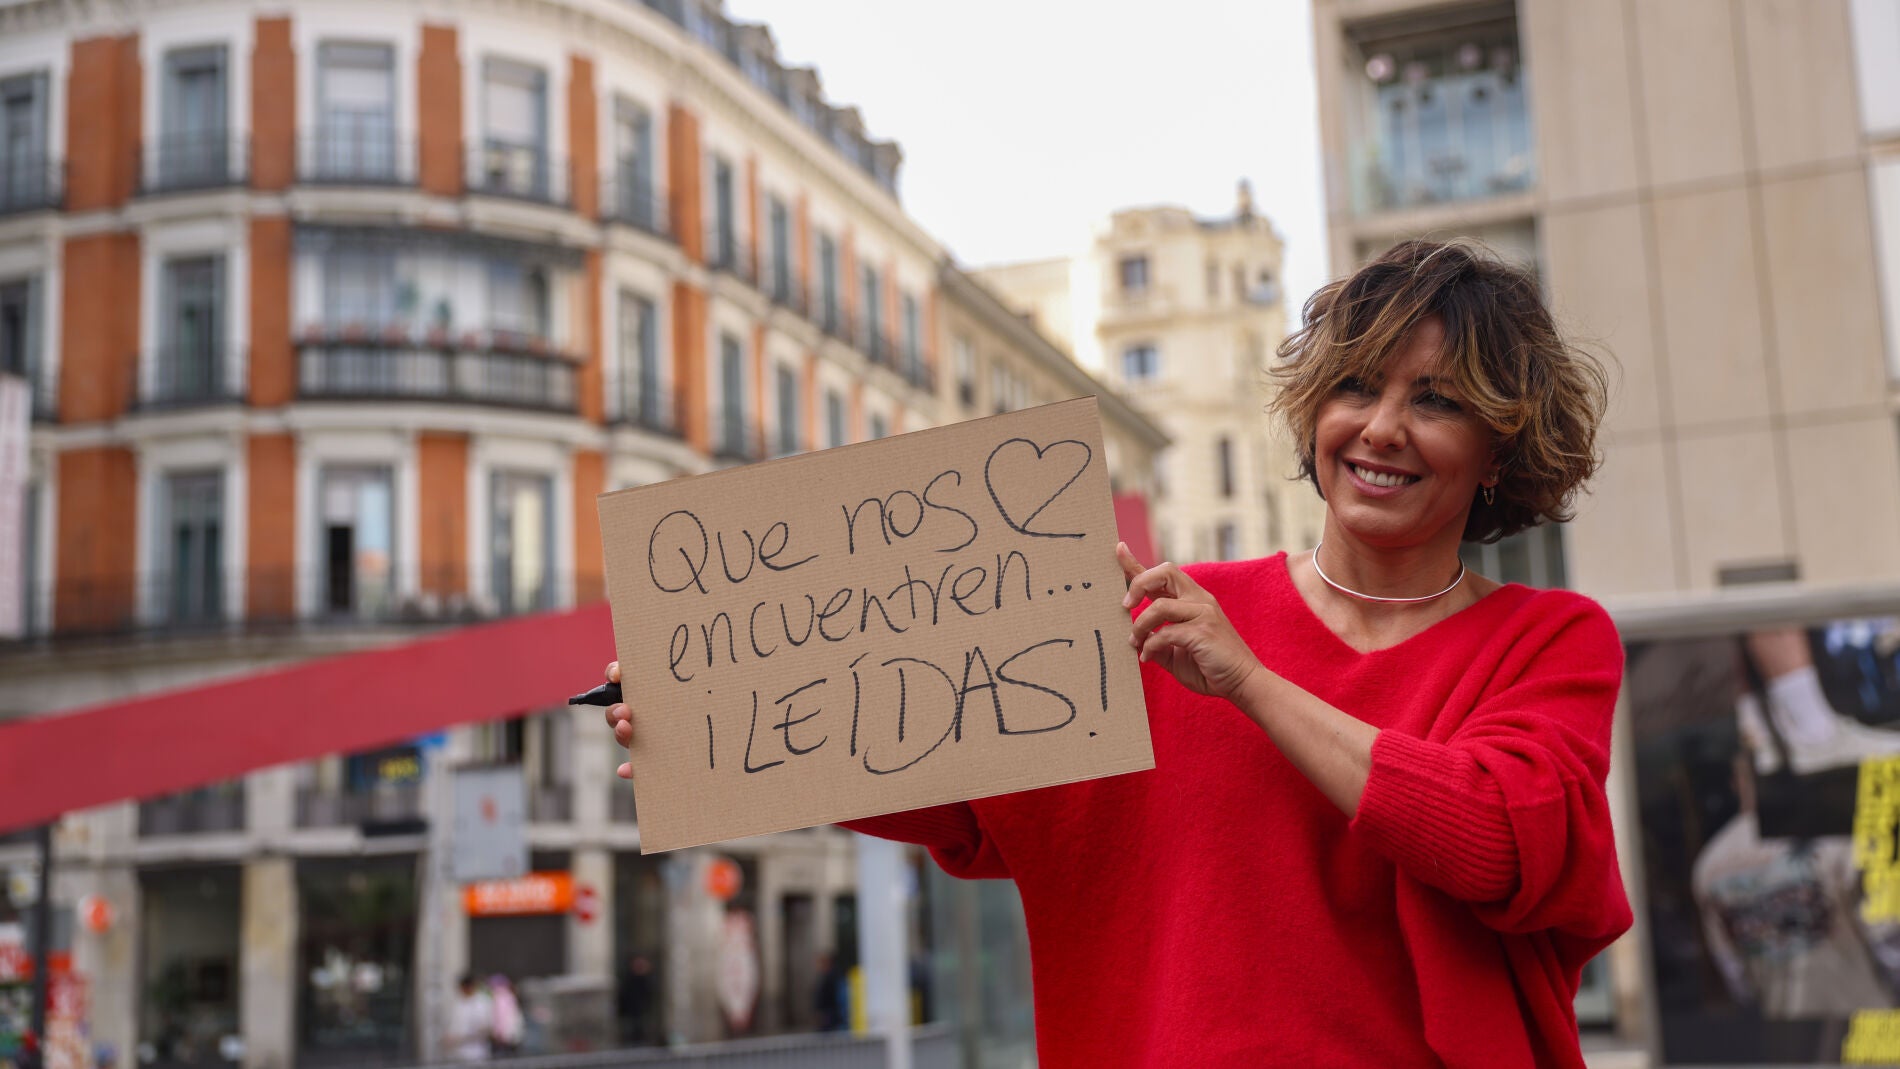 Que nos
encuentren...
¡LEÍDAS!